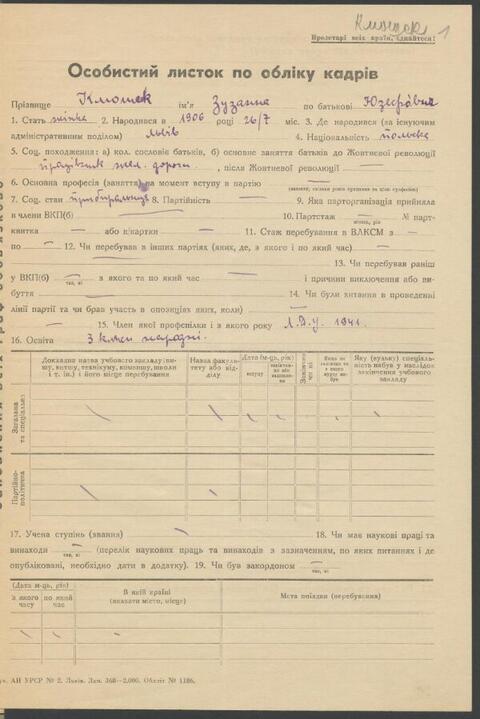 1
Пролетарі всіх країн, єднайтеся!
Особистий листок по обліку кадрів
Прізвище Клюшек ім'я Зузанна по батькові
1. Стать жінка 2. Народився в 1906 році 26/7 міс. 3. Де народився (за існуючим
адміністративним поділом) Львів 4. Національність полька
5. Соц. походження: а) кол. сословіє батьків, б) основне заняття батьків до Жовтневої революції
працівник жел. дороги, після Жовтневої революції —
6. Основна професія (заняття) на момент вступу в партію —
7. Соц. стан прибиральниця 8. Партійність — 9. Яка парторганізація прийняла
в члени ВКП(б) — 10. Партстаж — № парт-
квитка — або к/картки — 11. Стаж перебування в ВЛКСМ з —
по — 12. Чи перебував в інших партіях (яких, де, з якого і по який час) —
13. Чи перебував раніш
у ВКП(б) — з якого та по який час — і причини виключення або ви-
так, ні
буття — 14. Чи були хитання в проведенні
лінії партії та чи брав участь в опозиціях яких, коли) —
— 15. Член якої профспілки і з якого року Л.Д.У. 1941.
16. Освіта 3 кляси народні.
Докладна назва учбового закладу: ви-
шу, втузу, технікуму, комвишу, школи
і т. ін.) і його місце перебування
Назва факуль-
тету або від-
ділу
Дата (м-ць, рік)
вступу
Яку (вузьку) спеціаль-
ність набув у наслідок
закінчення учбового
закладу
Загальна
та спеціальна
Партійно-
політична
17. Учена ступінь (звання) 18. Чи має наукові праці та
винаходи — (перелік наукових праць та винаходів з зазначенням, по яких питаннях і де
так, ні
опубліковані, необхідно дати в додатку). 19. Чи був закордоном —
так, ні
(Дата м-ць, рік)
з якого
часу
по який
час
В якій країні
(вказати місто, місце)
Мета поїздки (перебування)
АН УРСР № 2. Львів. Зам. 368—2.000. Обліт № 1186.